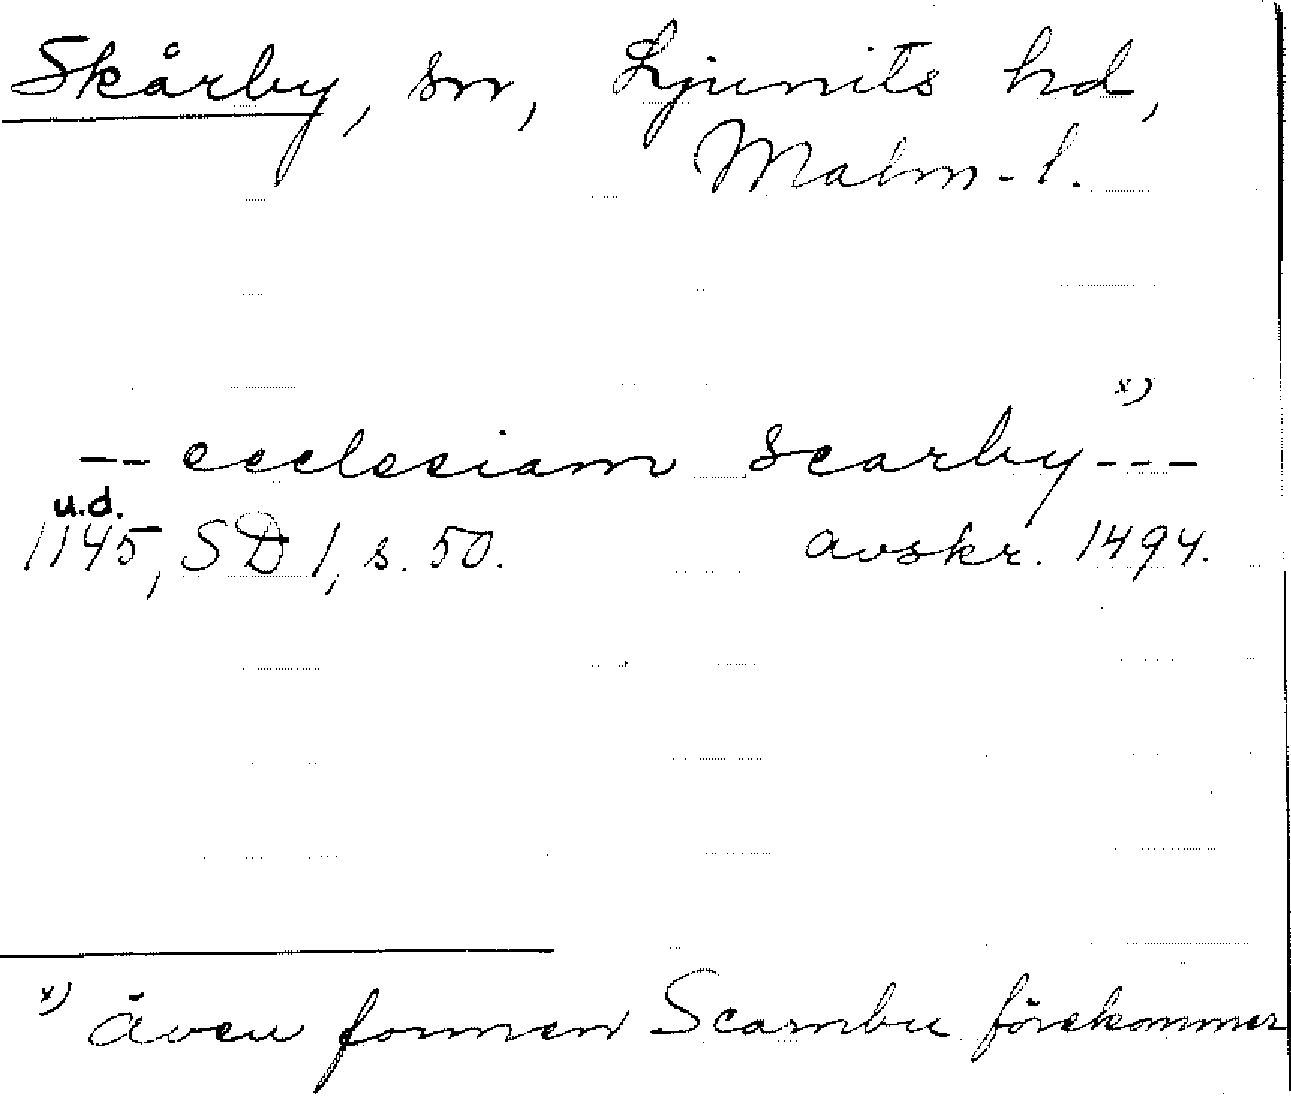 Skårby, sn, Ljunits hd,
Malm-l.
x)
-- ecclesiam scarby---
u.d.
1145, SD 1, s. 50. avskr. 1494.
x) även formen Scarnbu förekommer